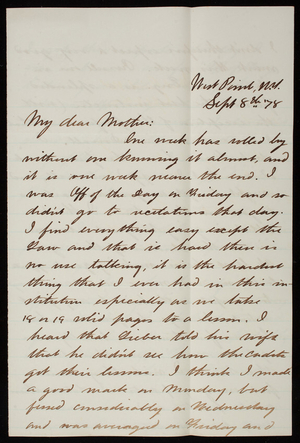 West Point, N.Y.
Sept 8th '78
My dear Mother:
One week has rolled by
without our knowing it almost, and
it is one week nearer the end. I
was Off of the Day on Friday and so
didn't go to recitations that day.
I find everything easy except the
Law and that is hard there is
no use talking, it is the hardest
thing that I ever had in this in-
stitution especially as we take
18 or 19 solid pages to a lesson. I
heard that Lieber told his wife
that he didn't see how the cadets
got their lessons. I think I made
a good mark on Monday, but
fessed considerably on Wednesday
and was averaged on Friday and